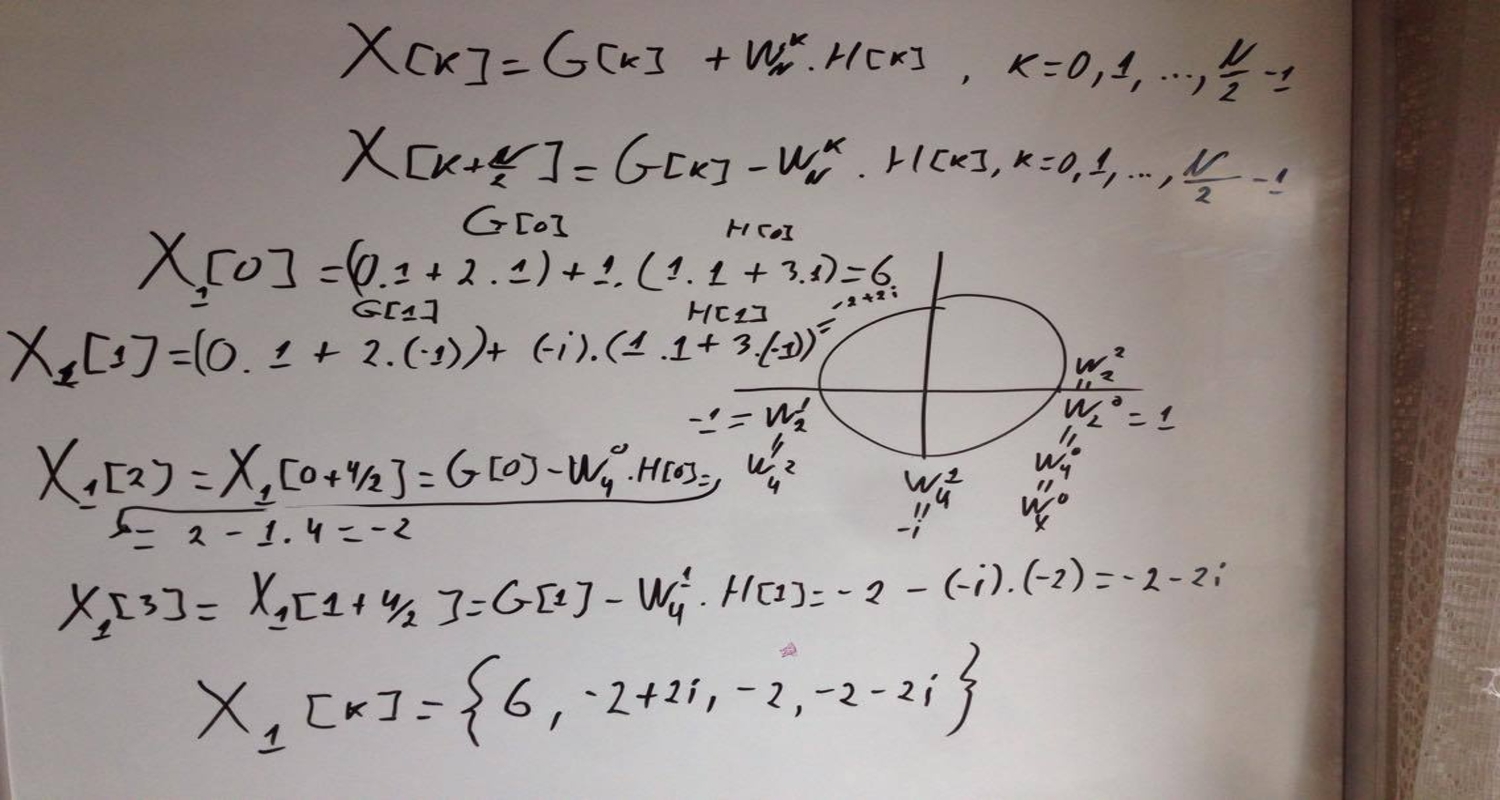 X[k]=G[k] + W_N^k . H[k] , k=0,1,...,N/2 -1
X[k+N/2]=G[k] - W_N^k . H[k], k=0,1,...,N/2 -1
G[0] H[0]
X_1[0] =(0.1 + 2.1) + 1.(1.1 + 3.1)=6
G[1] H[1]
X_1[1]=(0.1 + 2.(-1))+ (-i).(1.1+3.(-1))=-2+2i
W_2^2
=
-1 = W_2^1
=
W_4^2
W_2^0 = 1
=
W_4^0
=
W_x^0
W_4^2
=
-i
X_1[2) = X_1[0+4/2]=G[0]-W_4^0.H[0]=
= 2 - 1.4 = -2
X_1[3]= X_1[1+4/2]=G[1]-W_4^1.H[1]=-2 -(-i).(-2)=-2-2i
X_1[k]={6, -2+2i, -2, -2-2i}